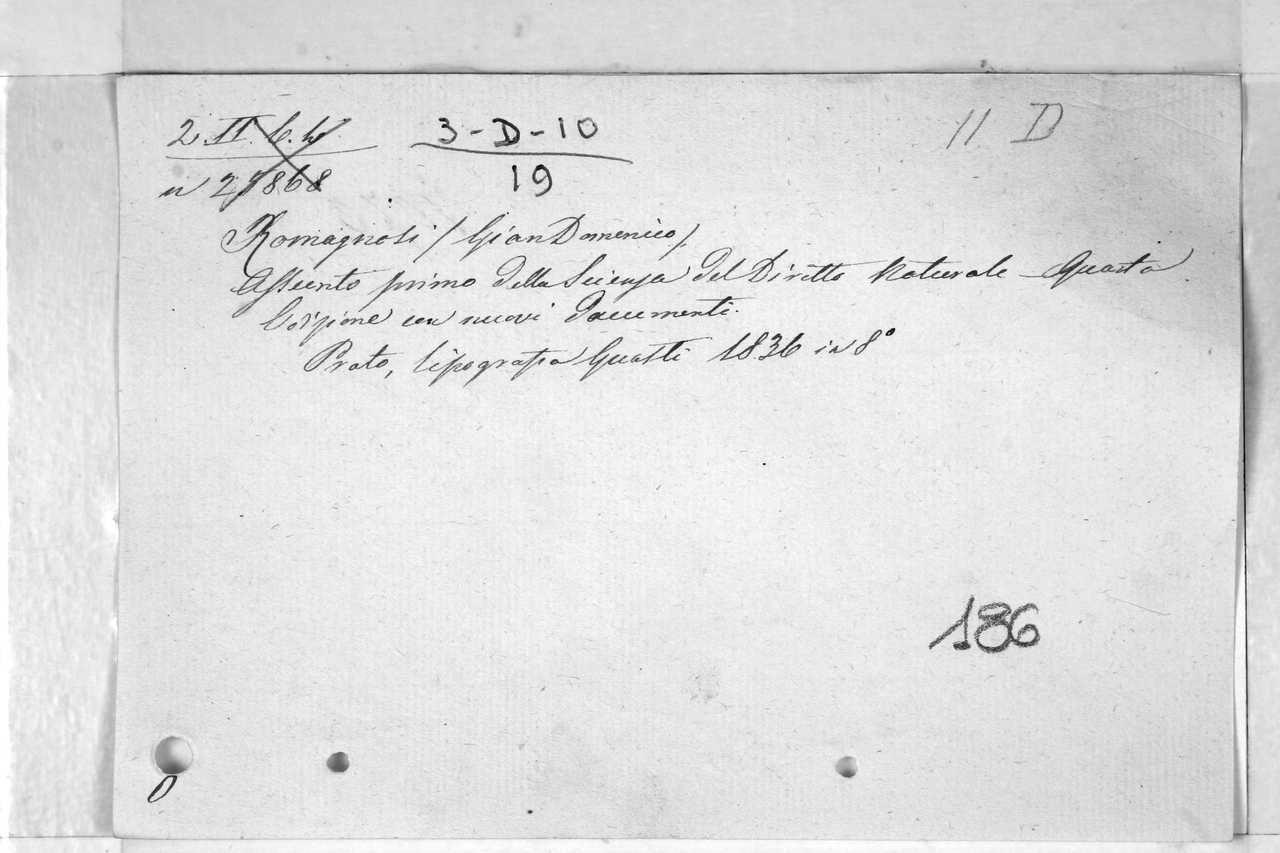 2. II. 6. 4 3-D-10 11 D
n 29868 19
Romagnosi / Gian Domenico /
Assunto primo della Scienza del Diritto Naturale - Quarta
Edizione con nuovi documenti.
Prato, tipografia Guasti 1836 in 8°
186
0